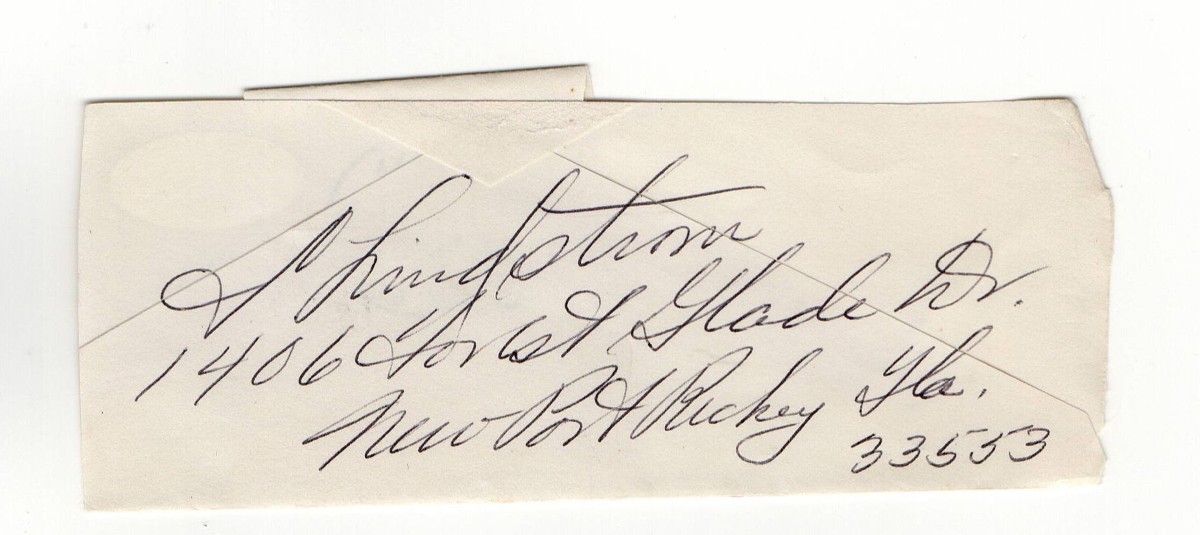 S Lindstrom
1406 Forest Glade Dr.
New Port Richey Fla.
33553